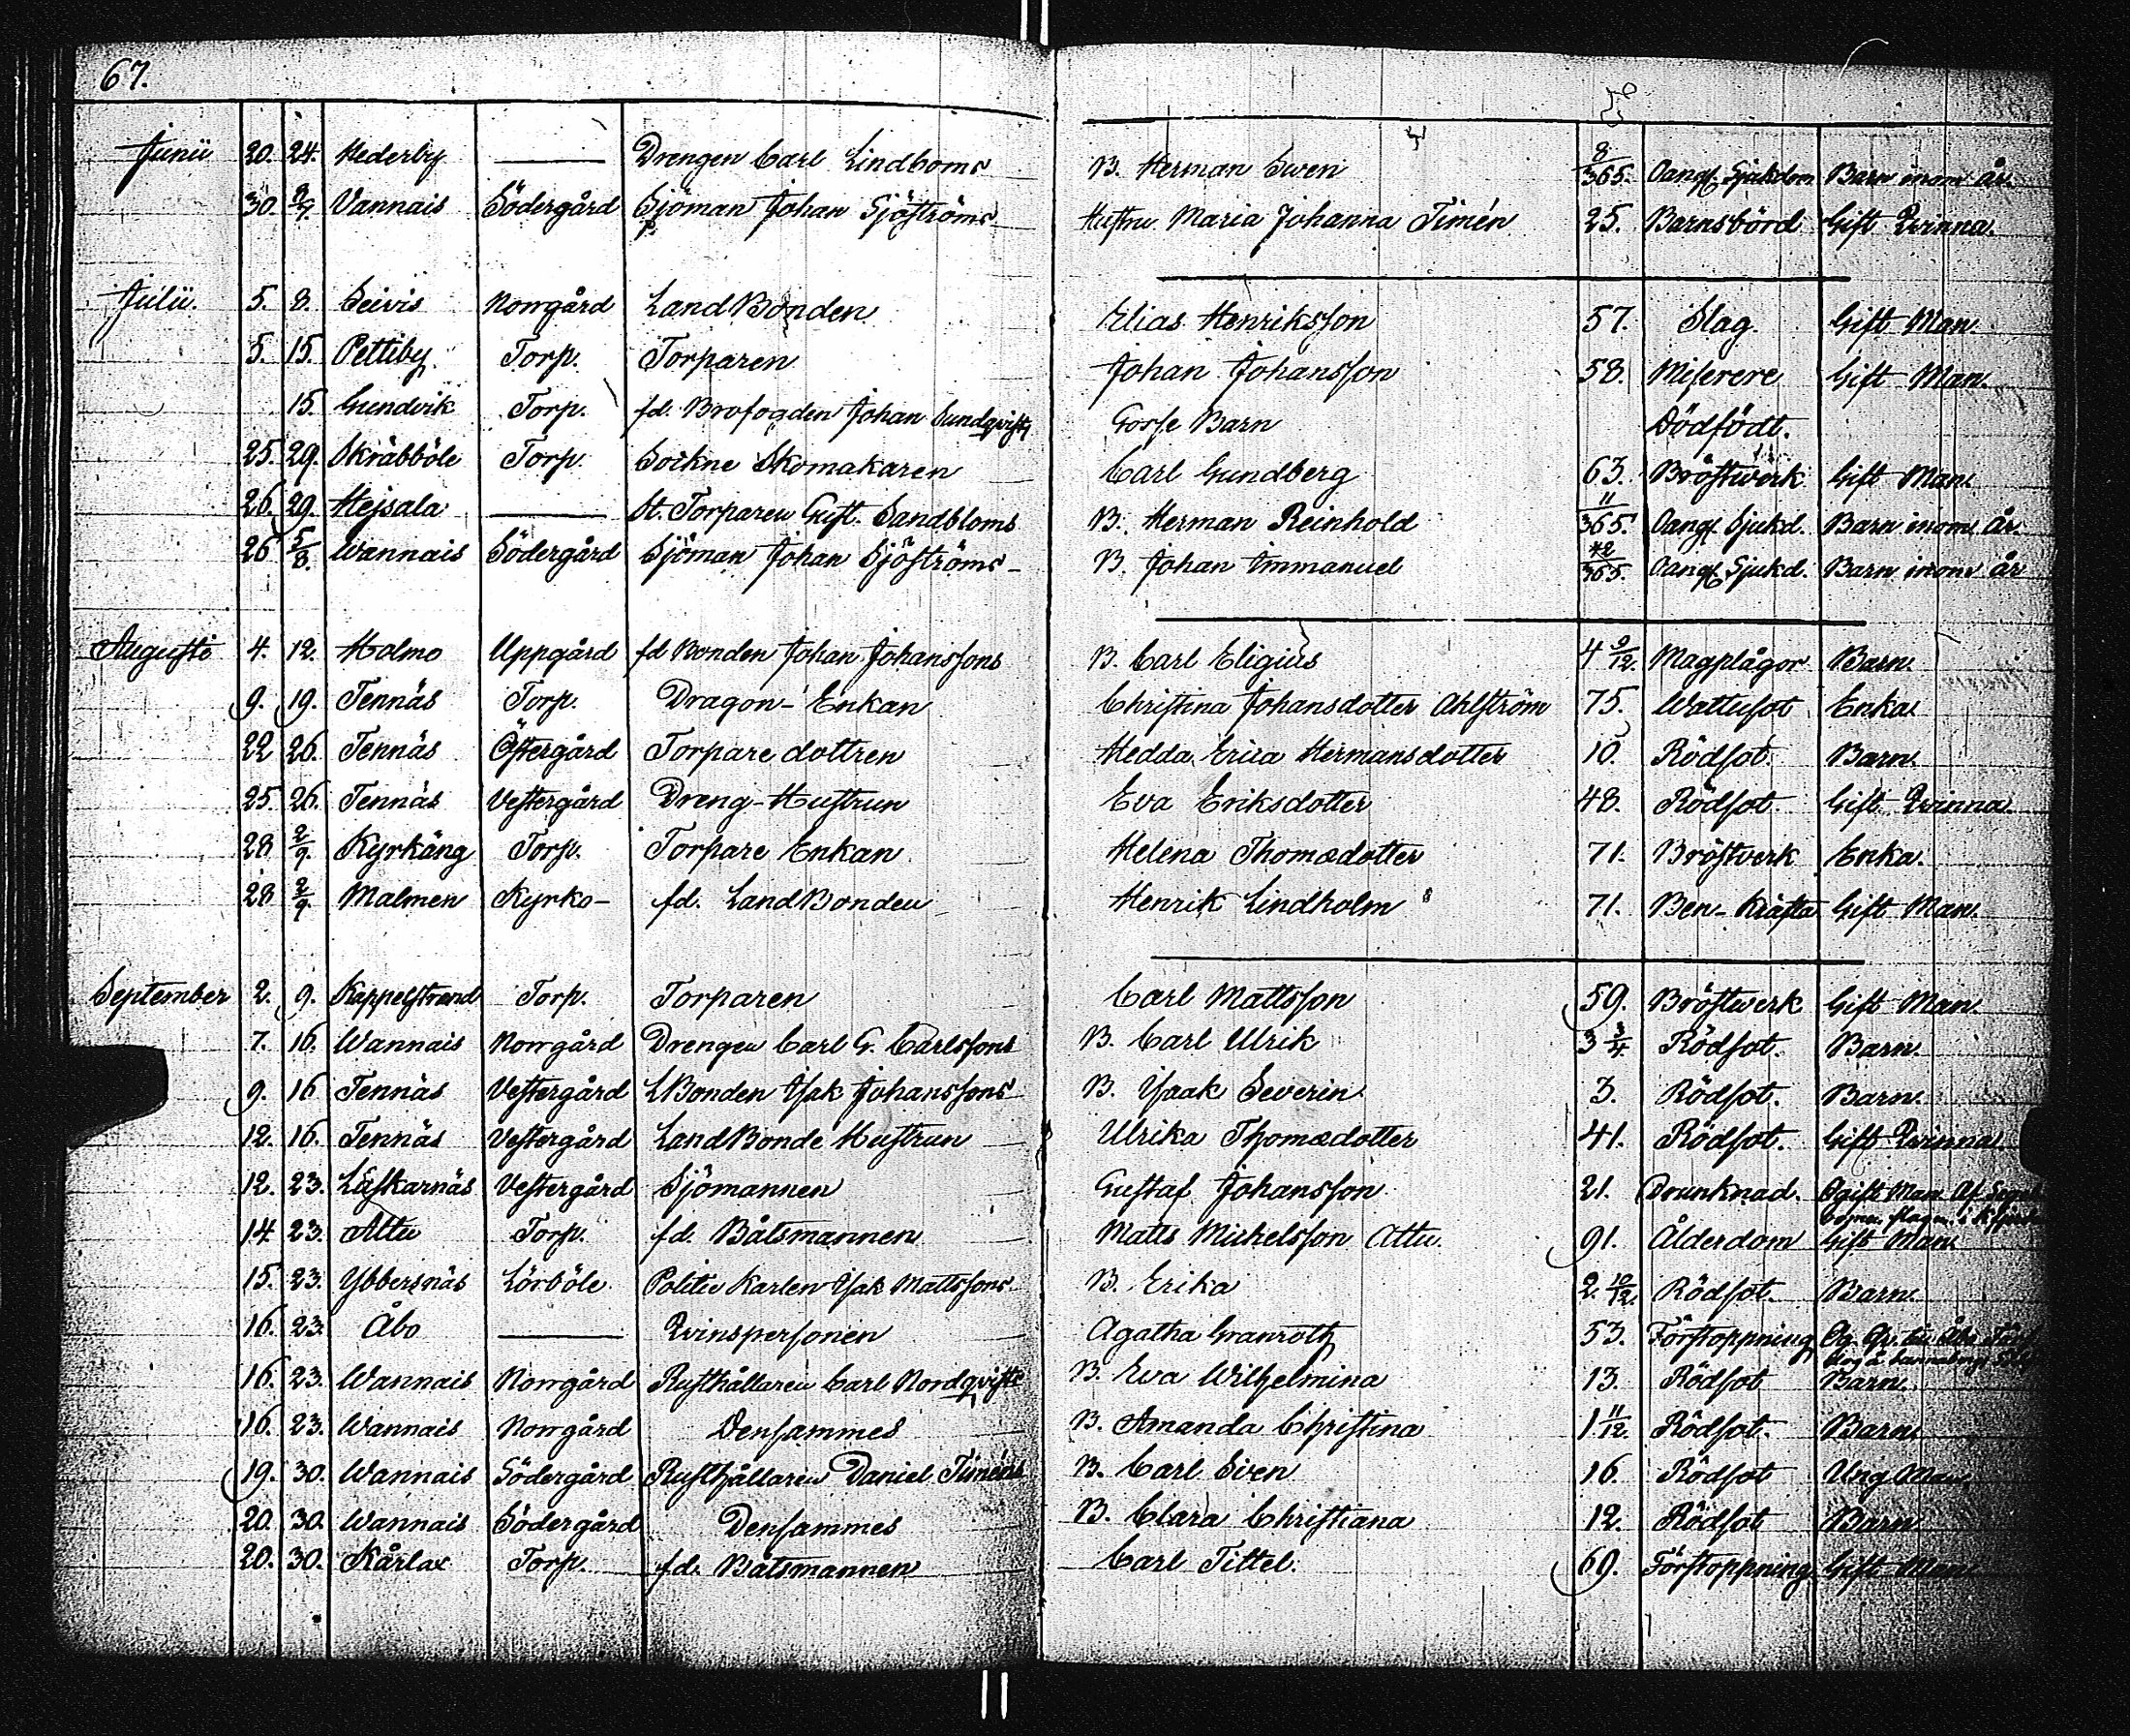 67.
Junii 20. 24. Nederby — Drengen Carl Lindboms B. Herman Swen 8/365. Oangf. Sjukdom Barn inom år.
30. 2/7. Vannais Södergård Sjöman Johan Sjöströms Hustru Maria Johanna Timén 25. Barnsbörd Gift Qvinna.
Julii. 5. 8. Seivis Norrgård LandBonden Elias Henriksson 57. Slag. Gift Man.
5. 15. Pettiby Torp. Torparen Johan Johansson 58. Miserere Gift Man.
15. Gundvik Torp. fd. Brofogden Johan Sundqvists Gosse Barn Dödfödt.
25. 29. Skräbböle Torp. Sockne Skomakaren Carl Gundberg 63. Bröstwerk Gift Man.
26. 29. Hejsala — St. Torparen Gust. Sandbloms B. Herman Reinhold 11/365. Oangf. Sjukd. Barn inom år.
26 5/8. Wannais Södergård Sjöman Johan Sjöströms B. Johan Immanuel /365. Oangf. Sjukd. Barn inom år
Augusti 4. 12. Malmo Uppgård fd Bonden Johan Johanssons B. Carl Eligius 4 9/12. Magplågor Barn.
9. 19. Tennäs Torp. Dragon-Enkan Christina Johansdotter Ahlström 75. Wattusot Enka
22 26. Tennäs Östergård Torpare dottren Hedda Erica Hermansdotter 10. Rödsot. Barn.
25. 26. Tennäs Vestergård Dreng-Hustrun Eva Eriksdotter 48. Rödsot. Gift Qvinna.
28 2/9. Kyrkäng Torp. Torpare Enkan Helena Thomædotter 71. Bröstverk Enka.
28 2/9. Malmen Kyrko- fd. LandBonden Henrik Lindholm 71. Ben-Kräfta Gift Man.
September 2. 9. Kappelstrand Torp. Torparen Carl Mattsson 59. Bröstwerk Gift Man.
7. 16. Wannais Norrgård Drengen Carl G. Carlssons B. Carl Ulrik 3 3/4. Rödsot. Barn.
9. 16 Tennäs Vestergård LBonden Isak Johanssons B. Isaak Severin 3. Rödsot. Barn.
12. 16. Tennäs Vestergård LandBonde Hustrun Ulrika Thomædotter 41. Rödsot. Gift Qvinna
12. 23. Läskarnäs Vestergård Sjömannen Gustaf Johansson 21. Drunknad. Ogift Man. Af
14 23. Attu Torp. fd. Båtsmannen Matts Michelsson Attu. 91. Ålderdom Gift Man.
15. 23. Ybbersnäs Lörböle Politie Karlen Isak Mattssons B. Erika 2. 10/12. Rödsot. Barn.
16. 23. Åbo — Qvinspersonen Agatha Granroth 53. Förstoppning
16. 23. Wannais Norrgård Rusthållaren Carl Nordqvists B. Eva Wilhelmina 13. Rödsot Barn.
16. 23. Wannais Norrgård Densammes B. Amanda Christina 1 11/12. Rödsot. Barn.
19. 30. Wannais Södergård Rusthållaren Daniel Timéns B. Carl Sven 16. Rödsot Ung Man
20. 30. Wannais Södergård Densammes B. Clara Christiana 12. Rödsot Barn
20. 30. Kårlax Torp. fd. Båtsmannen Carl Tittel. 69. Förstoppning Gift Man